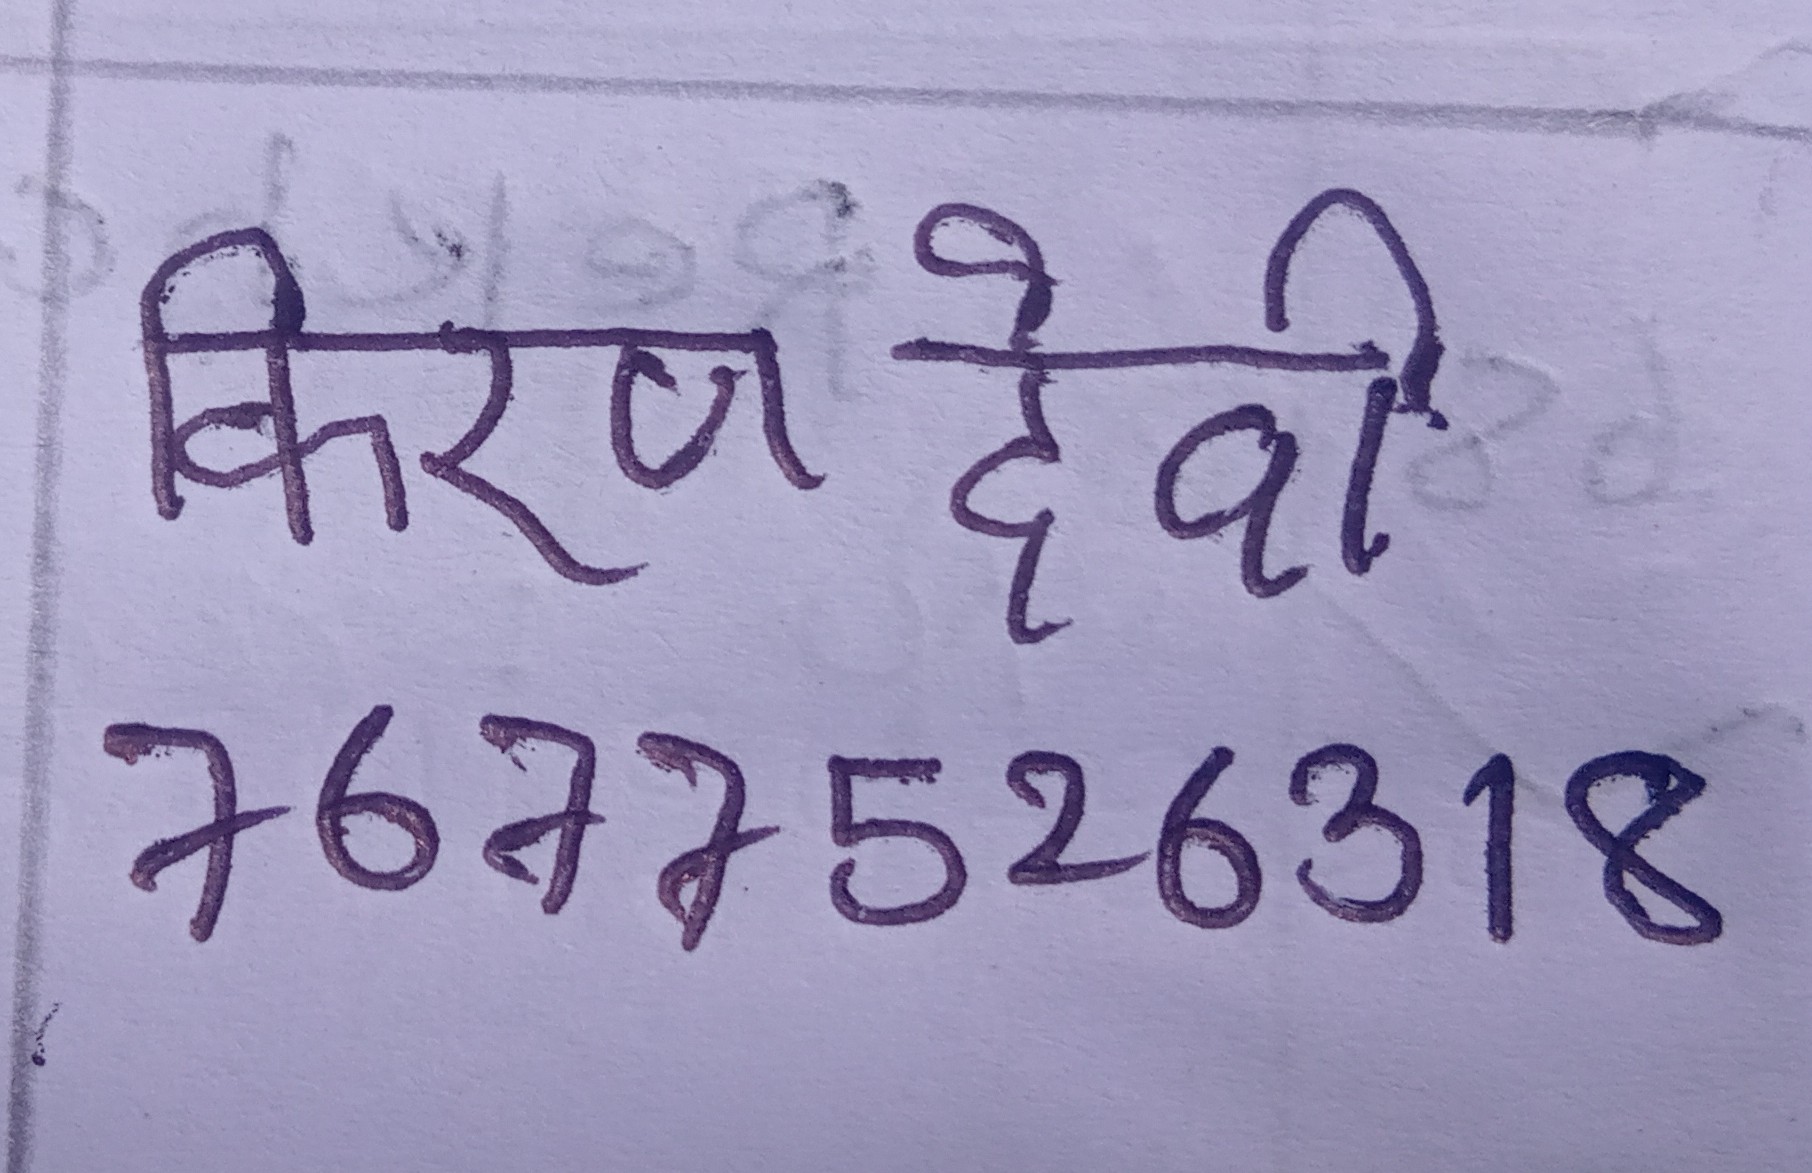 किरण देवी
7677526318